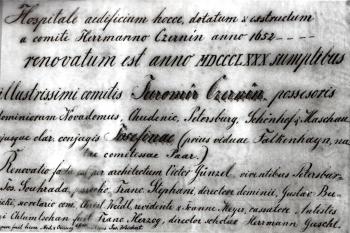 Hospitale aedificium hocce, dotatum & exstructum
a comite Herrmanno Czernin anno 1652
renovatum est anno MDCCCLXXX sumptibus
illustrissimi comitis Jaromir Czernin, possesoris
dominiorum Novadomus, Chudenic, Petersburg, Schönhof & Maschau
ejusque clar. conjugis Josefinae (prius viduae Falkenhayn, na-
tae comitissae Paar.)
Renovatio facta est per architectum Victor Günzel, viventibus Petersbur-
Jos. Souhrada, parocho, Franc Stephani, directore dominii, Gustav Be-
cki, secretario com. Alois Weidl, revidente & Joanne Meyer, cassatore. Antistes
in Chlumtschan fuit Franc Herzog, director scholae Hermann Guschl.